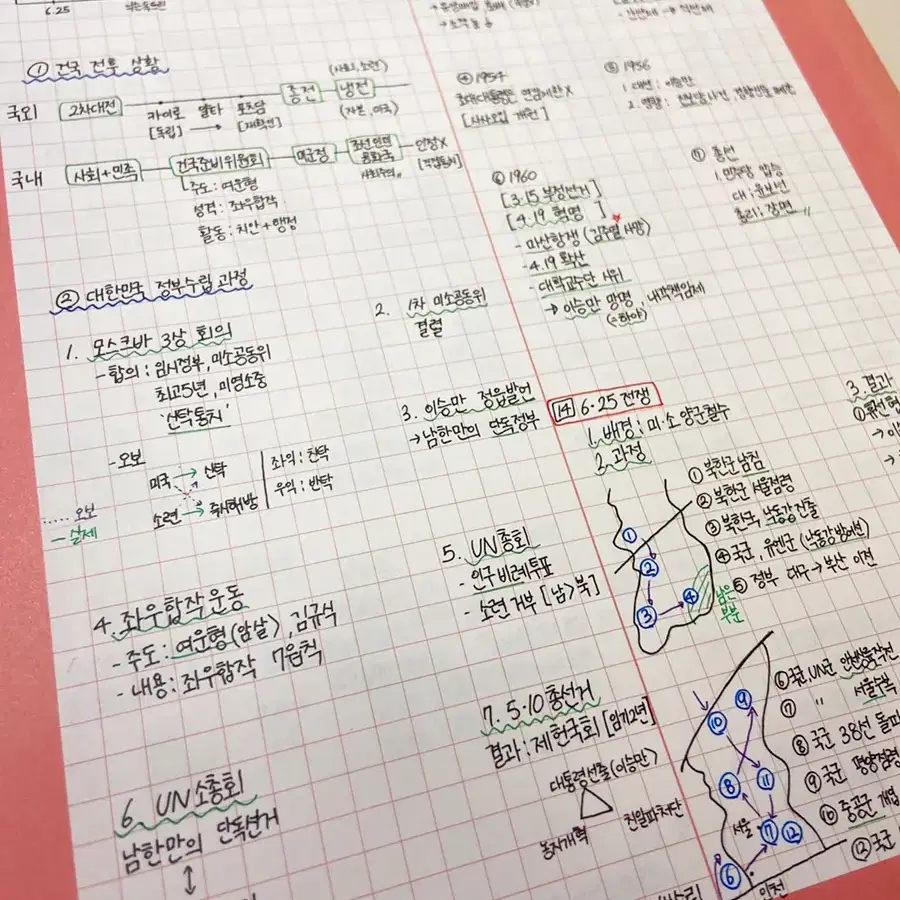 6.25
① 건국 전후 상황
국외
2차대전
카이로 얄타 포츠담
[독립] → [재확인]
종전
냉전
(자본, 미국)
국내
사회+민족
건국준비위원회
미군정
조선인민공화국
인정X
(직접통치)
주도: 여운형
성격: 좌우합작
활동: 치안+행정
② 대한민국 정부수립 과정
1. 모스크바 3상 회의
- 합의: 임시정부, 미소공동위
최고5년, 미영소중
'신탁통치'
- 오보
미국 → 신탁
소련 → 즉시해방
좌익: 찬탁
우익: 반탁
..... 오보
— 실제
2. 1차 미소공동위
결렬
3. 이승만 정읍발언
→ 남한만의 단독정부
4. 좌우합작운동
- 주도: 여운형(암살), 김규식
- 내용: 좌우합작 7원칙
5. UN총회
- 인구비례투표
- 소련 거부 [남>북]
6. UN소총회
남한만의 단독선거
↕
7. 5·10 총선거
결과: 제헌국회 [임기2년]
대통령선출(이승만)
농지개혁
친일파처단
④ 1954
초대대통령은 연임제한X
[사사오입 개헌]
⑤ 1956
1. 대선: 이승만
⑥ 1960
[3.15 부정선거]
[4.19 혁명]
- 마산항쟁 (김주열 사망)
- 4.19 확산
- 대학교수단 시위
→ 이승만 망명, 내각책임제
(=하야)
⑦ 총선
1. 민주당 압승
대: 윤보선
총리: 장면
14 6·25 전쟁
1. 배경: 미·소 양군철수
2. 과정
① 북한군 남침
② 북한군 서울점령
③ 북한군 낙동강 진출
④ 국군, 유엔군 (낙동강 방어선)
⑤ 정부 대구→부산 이전
① ② ③ ④
남은
부분
3. 결과
⑥ 국군, UN군 인천상륙작전
⑦ " 서울수복
⑧ 국군 38선 돌파
⑨ 국군 평양점령
⑩ 중공군 개입
⑫ 국군
⑨ ⑩ ⑧ ⑪
서울 ⑦ ⑫
⑥
인천